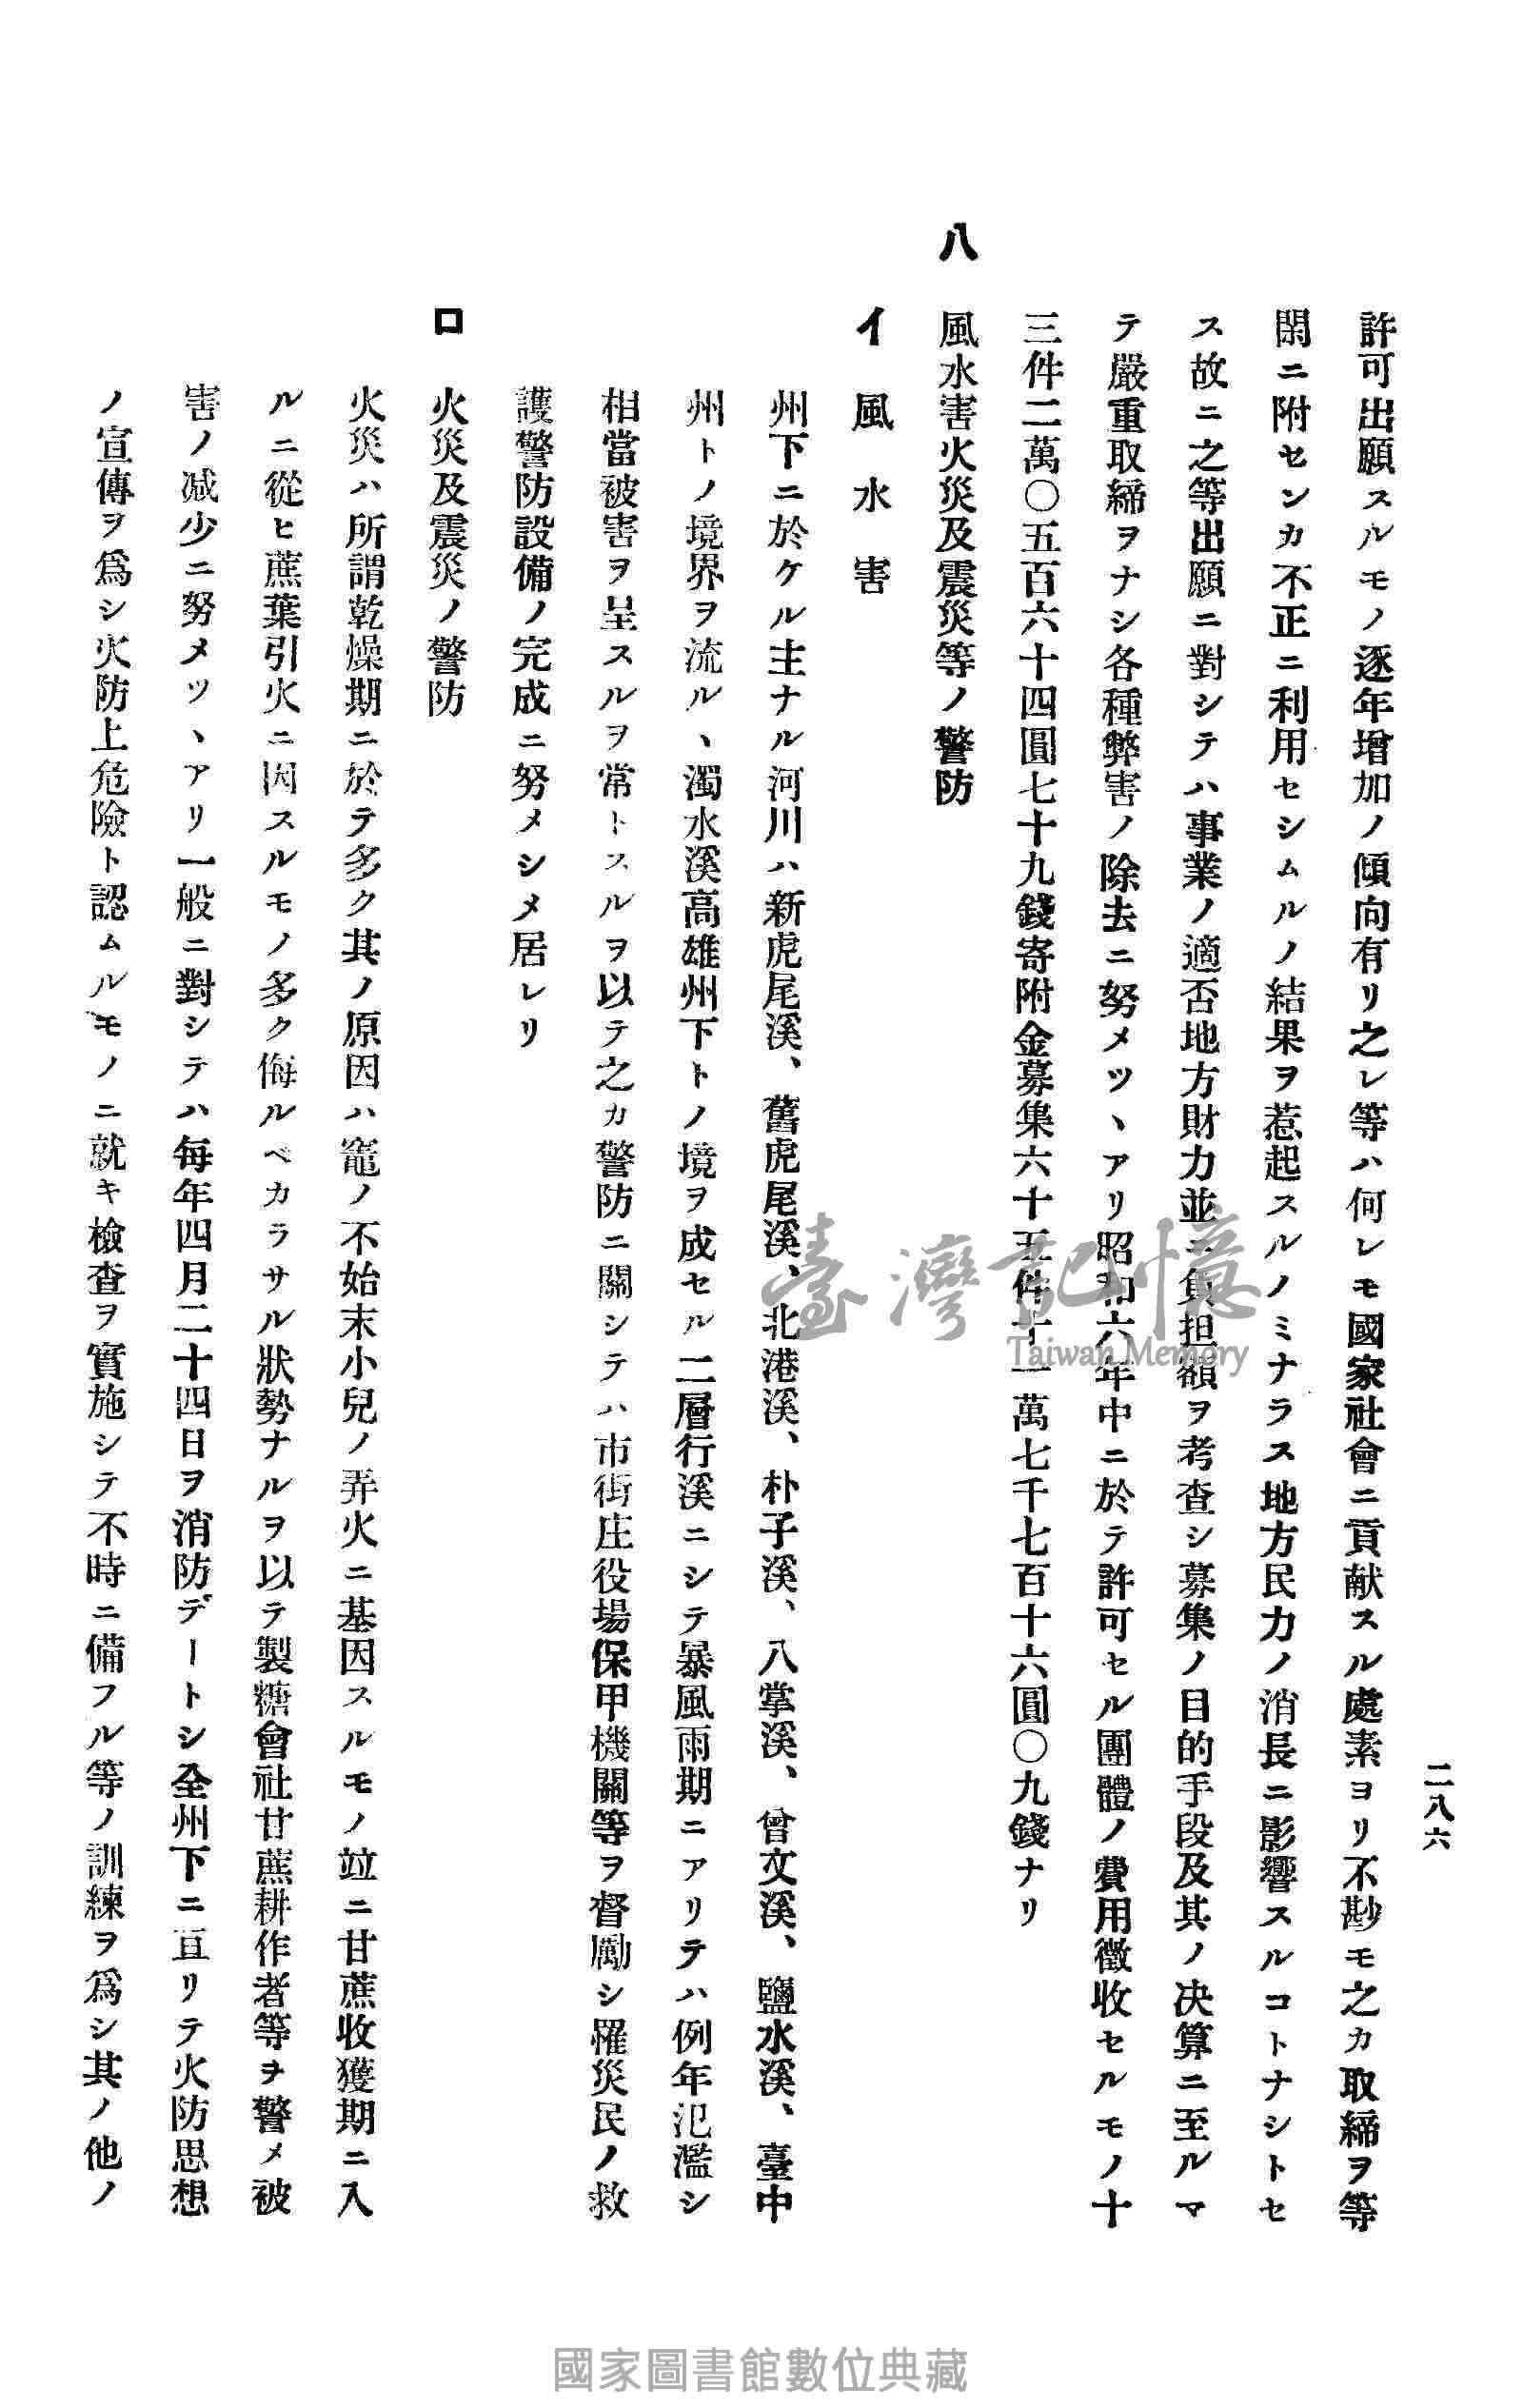 二八六
許可出願スルモノ逐年增加ノ傾向有リ之レ等ハ何レモ國家社會ニ貢献スル處素ヨリ不尠モ之カ取締ヲ等
閑ニ附センカ不正ニ利用セシムルノ結果ヲ惹起スルノミナラス地方民力ノ消長ニ影響スルコトナシトセ
ス故ニ之等出願ニ對シテハ事業ノ適否地方財力並ニ負担額ヲ考查シ募集ノ目的手段及其ノ决算ニ至ルマ
テ嚴重取締ヲナシ各種弊害ノ除去ニ努メツヽアリ昭和六年中ニ於テ許可セル團體ノ費用徵收セルモノ十
三件二萬〇五百六十四圓七十九錢寄附金募集六十五件十一萬七千七百十六圓〇九錢ナリ
八 風水害火災及震災等ノ警防
イ 風水害
州下ニ於ケル主ナル河川ハ新虎尾溪、舊虎尾溪、北港溪、朴子溪、八掌溪、曾文溪、鹽水溪、臺中
州トノ境界ヲ流ルヽ濁水溪高雄州下トノ境ヲ成セル二層行溪ニシテ暴風雨期ニアリテハ例年氾濫シ
相當被害ヲ呈スルヲ常トスルヲ以テ之カ警防ニ關シテハ市街庄役場保甲機關等ヲ督勵シ罹災民ノ救
護警防設備ノ完成ニ努メシメ居レリ
ロ 火災及震災ノ警防
火災ハ所謂乾燥期ニ於テ多ク其ノ原因ハ竈ノ不始末小兒ノ弄火ニ基因スルモノ竝ニ甘蔗收獲期ニ入
ルニ從ヒ蔗葉引火ニ因スルモノ多ク侮ルベカラサル狀勢ナルヲ以テ製糖會社甘蔗耕作者等ヲ警メ被
害ノ減少ニ努メツヽアリ一般ニ對シテハ每年四月二十四日ヲ消防デートシ全州下ニ亘リテ火防思想
ノ宣傳ヲ爲シ火防上危險ト認ムルモノニ就キ檢查ヲ實施シテ不時ニ備フル等ノ訓練ヲ爲シ其ノ他ノ
臺灣記憶
Taiwan Memory
國家圖書館數位典藏